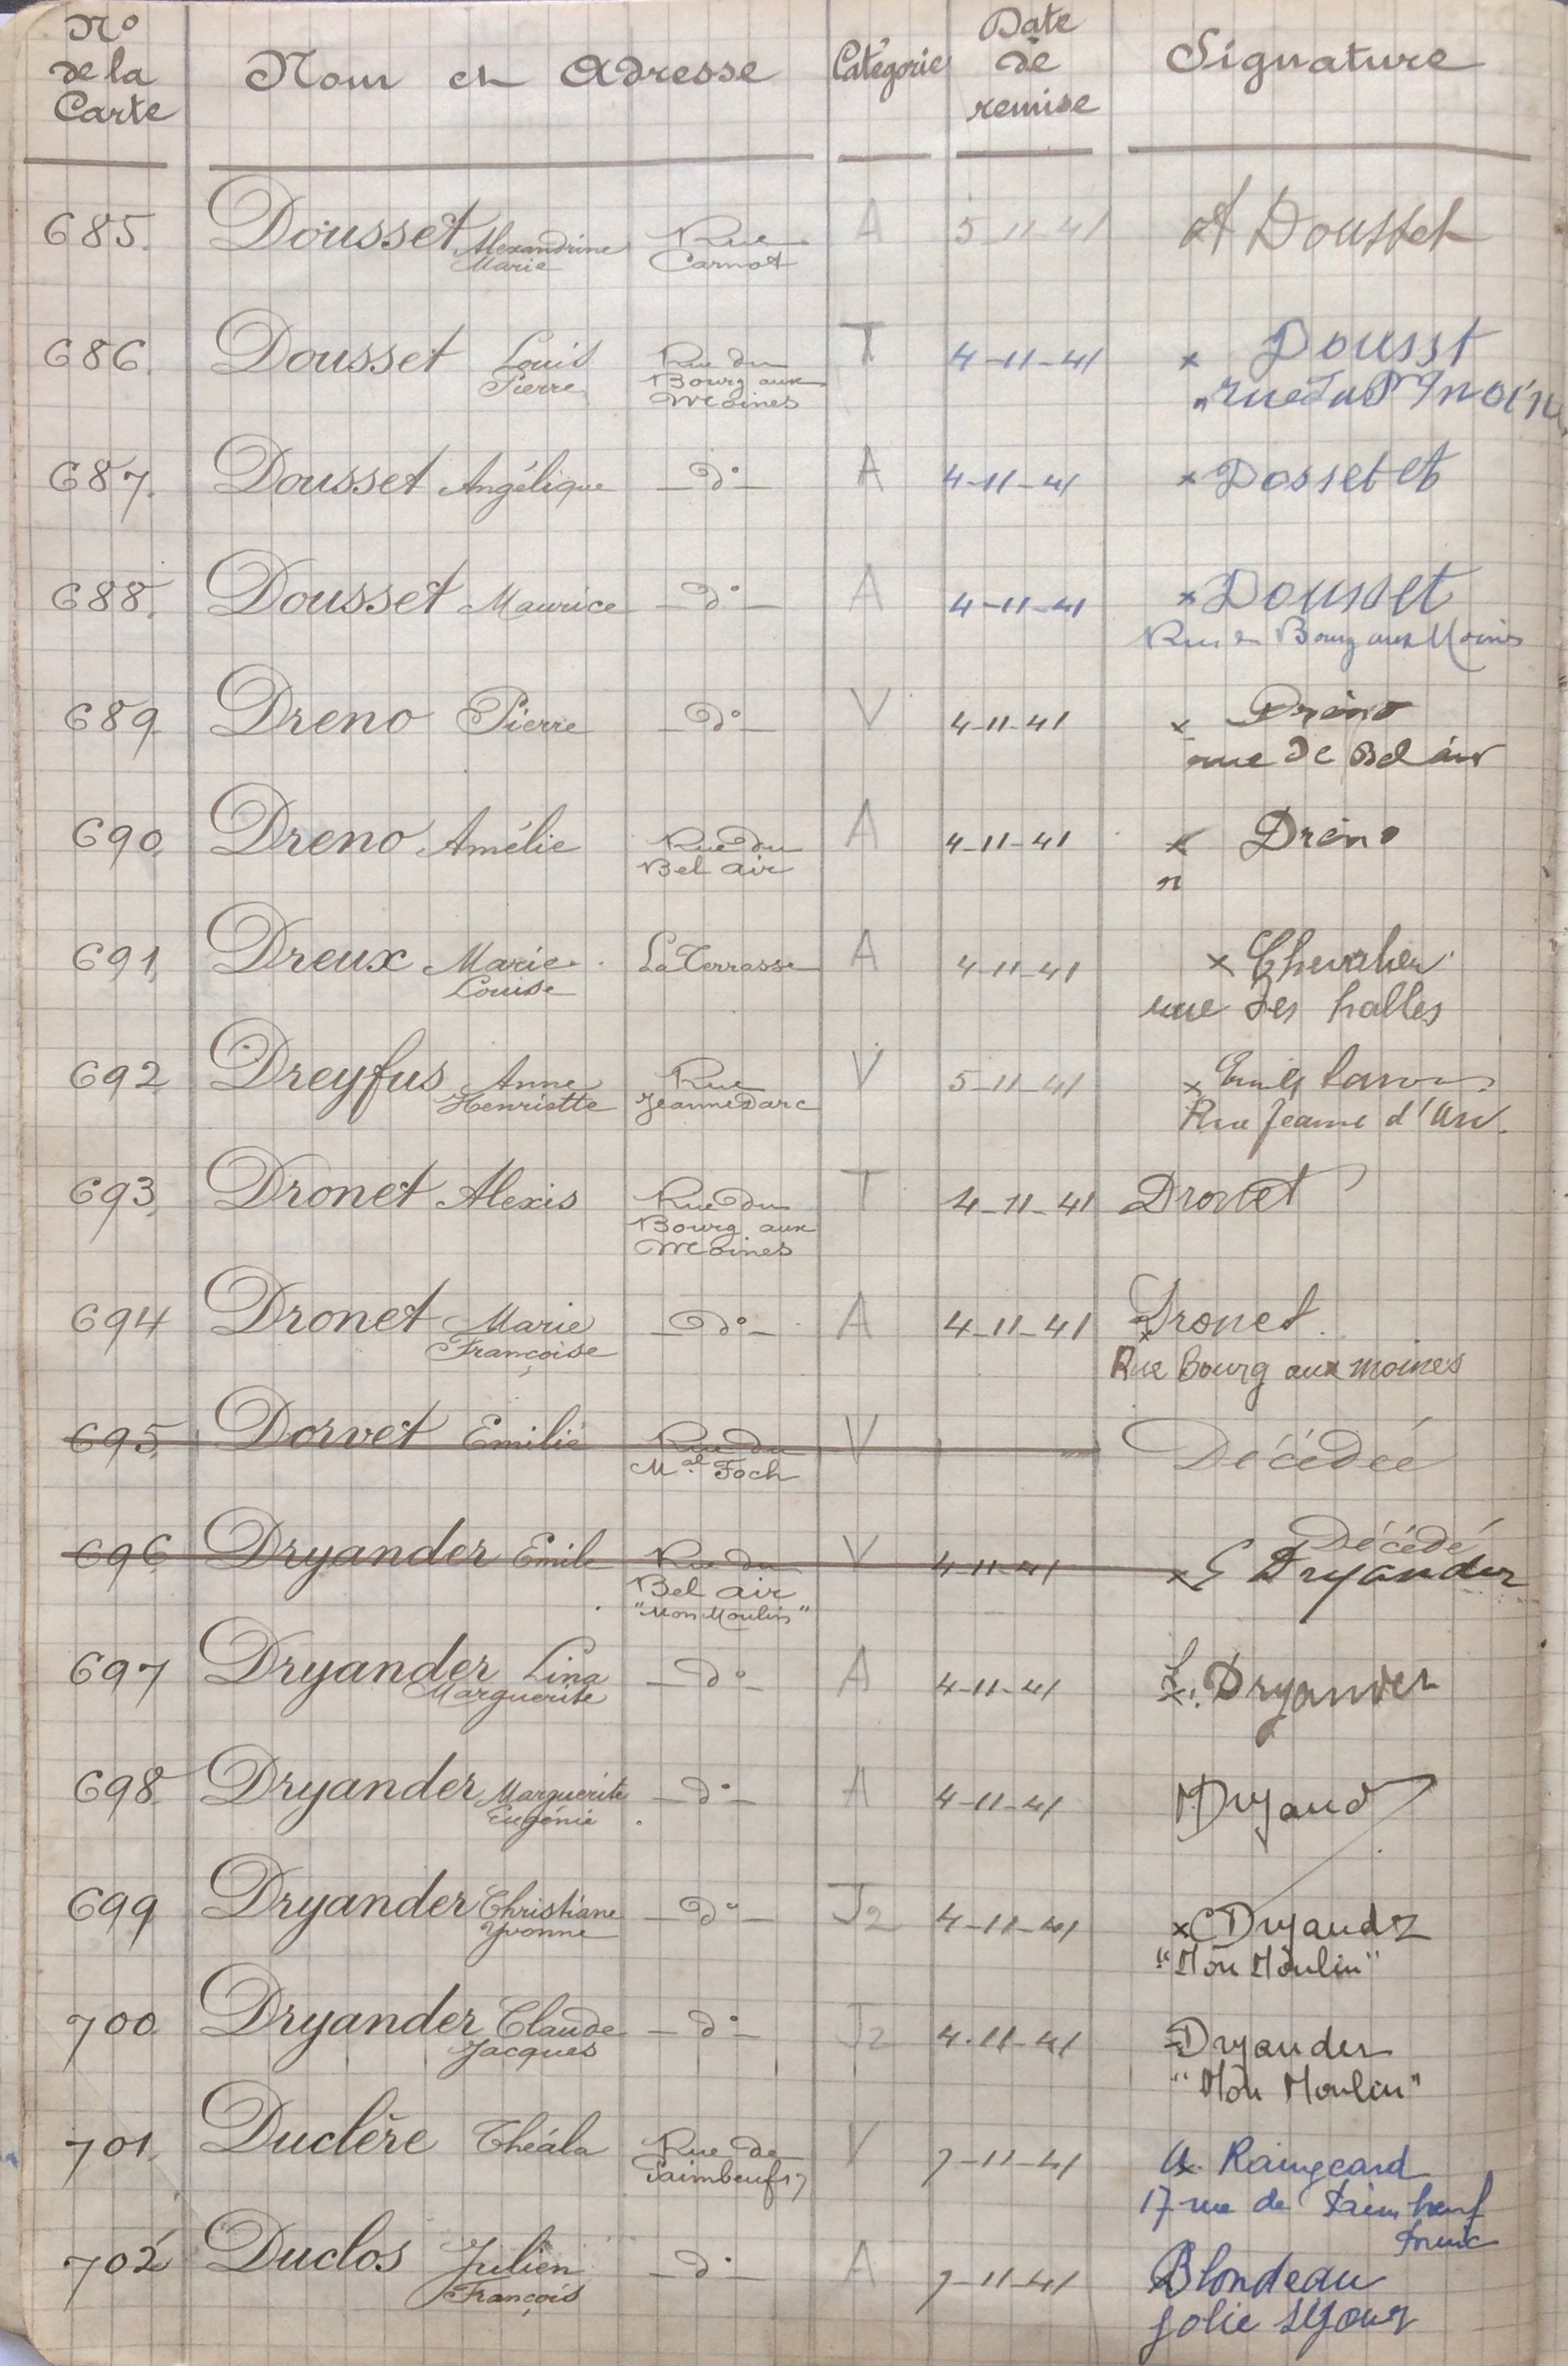 N° de la Carte Nom et Adresse Catégorie Date de remise Signature
685. Dousset Alexandrine Marie Rue Carnot A 5 11 41 A Dousset
686. Dousset Louis Pierre Rue du Bourg aux Moines T 4-11-41 x Dousst
687. Dousset Angélique -d°- A 4-11-41 x Dosset
688. Dousset Maurice -d°- A 4-11-41 x Dousset
Rue du Bourg aux Moines
689 Dreno Pierre -d°- V 4-11-41 x Dréno
rue de Bel air
690. Dreno Amélie Rue du Bel air A 4-11-41 x Dréno
"
691. Dreux Marie Louise La Terrasse A 4-11-41 x Chevalier
rue des halles
692 Dreyfus Anne Henriette Rue Jeanne Darc V 5-11-41 x
Rue Jeanne d'Arc.
693. Dronet Alexis Rue du Bourg aux Moines T 4-11-41 Dronet
694 Dronet Marie Françoise -d°- A 4-11-41 x Dronet
Rue bourg aux moines
695. Dorvet Emilie Rue du Mal Foch V Décédée
696 Dryander Emile Rue du Bel air "Mon Moulin" V 4-11-41 Décédé
x E Dryander
697 Dryander Lina Marguerite -d°- A 4-11-41 x L. Dryander
698 Dryander Marguerite Eugénie -d°- A 4-11-41 MDryand
699 Dryander Christiane Yvonne -d°- J2 4-11-41 x C Dryandr
"Mon Moulin"
700 Dryander Claude Jacques -d°- J2 4.11-41 Dryander
"Mon Moulin"
701. Duclère Théala Rue de Paimbeuf 17 V 7-11-41 x Raingeard
17 rue de Paimbeuf
702 Duclos Julien François -d°- A 7-11-41 Blondeau
jolie séjour